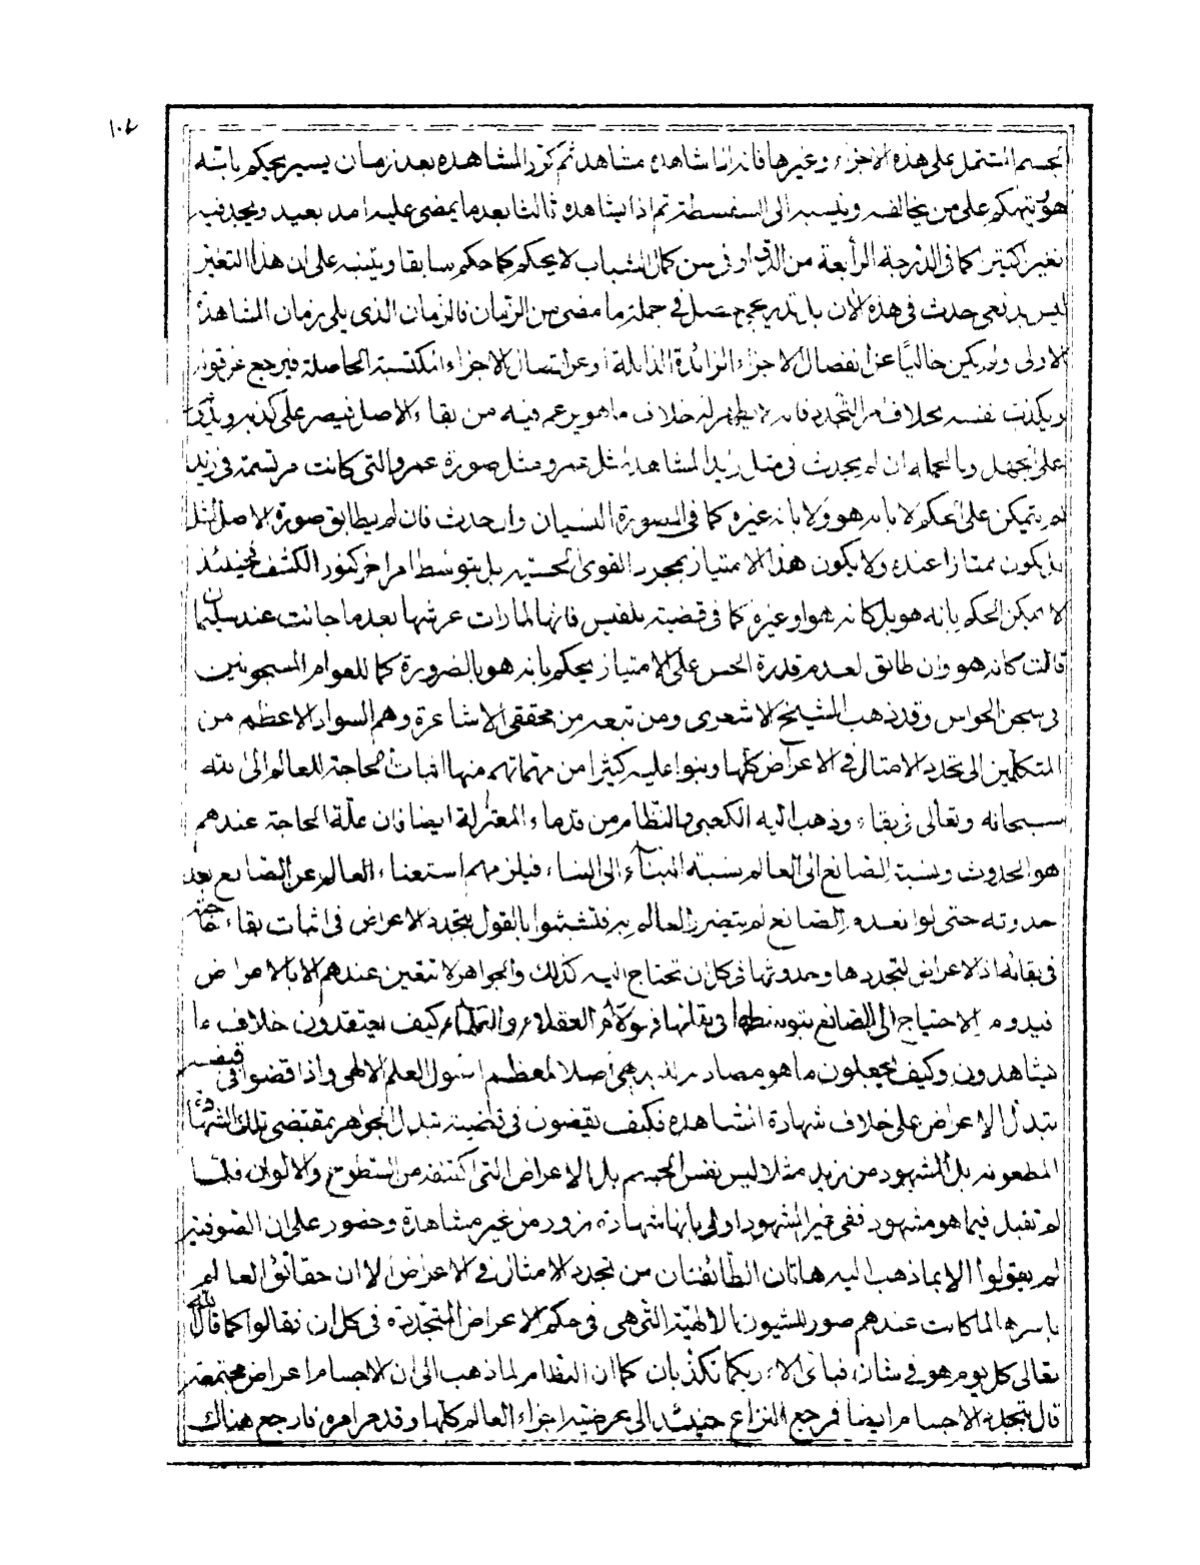 ١٠٤
الجسم المشتمل على هذه الاجزاء وغيرها فانه اذا شاهده مشاهد ثم كرر المشاهده بعد زمان يسير يحكم بانه
هو ويتهكم على من يخالفه وينسبه الى السفسطة ثم اذا يشاهده ثالثا بعد ما يمضى عليه امد بعيد ويجد فيه
تغيرا كثيرا كما فى الدرجة الرابعة من او فى سن كمال الشباب لا يحكم كما حكم سابقا ويتنبه على ان هذا التغير
ليس بدفعى حدث فى هذه الآن بل بتدريج حصل فى جملة ما مضى من الزمان فالزمان الذى يلى زمان المشاهدة
الاولى لم يكن خاليا عن انفصال الاجزاء الزائدة الذابلة او عن اتصال الاجزاء المكتسبة الحاصلة فيرجع عن قوله
ويكذب نفسه بخلاف التجدد فانه لا يظهر له خلاف ما هو يزعم فيه من بقاء الاصل فيصر على كذبه
على الجهل وبالجملة ان لم يحدث فى مثل زيد المشاهد مثل عمرو مثل صورة عمرو التى كانت مرتسمة فى زيد
لم يتمكن على الحكم لا بانه هو ولا بانه غيره كما فى صورة النسيان وان حدث فان لم يطابق صورة الاصل
بل يكون ممتازا عنده ولا يكون هذا الامتياز بمجرد القوى الحسية بل بتوسط امر اخر كنور الكشف فحينئذ
لا يمكن الحكم بانه هو بل كانه هو او غيره كما فى قضية بلقيس فانها لما رات عرشها بعد ما جائت عند سليمان
قالت كانه هو وان طابق لعدم قدرة الحس على الامتياز يحكم بانه هو بالضرورة كما للعوام المسجونين
فى سجن الحواس وقد ذهب الشيخ الاشعرى ومن تبعه من محققى الاشاعرة وهم السواد الاعظم من
المتكلمين الى تجدد الامثال فى الاعراض كلها وبنوا عليه كثيرا من مهماتهم منها اثبات الحاجة للعالم الى الله
سبحانه وتعالى فى بقاءه وذهب اليه الكعبى والنظام من قدماء المعتزلة ايضا فان علة الحاجة عندهم
هو الحدوث ونسبة الصانع الى العالم نسبة البناء الى البناء فيلزمهم استغناء العالم عن الصانع بعد
حدوثه حتى لو انعدم الصانع لم يتضرر العالم به فتشبثوا بالقول بتجدد الاعراض فى اثبات بقاء حاجته
فى بقائه اذ الاعراض لتجددها وحدوثها فى كل ان تحتاج اليه كذلك والجواهر لا تتقين عندهم الا بالاعراض
فيدوم الاحتياج الى الصانع فى بقائها فهؤلاء العقلاء والعلماء كيف يعتقدون خلاف ما
يشاهدون وكيف يجعلون ما هو مصادم للبديهى اصلا لمعظم اصول العلم الالهى واذا قضوا فى قضية
تبدل الاعراض على خلاف شهادة المشاهدة فكيف يقضون فى قضية تبدل الجواهر بمقتضى تلك الشهادة
المطعونه بل المشهود من زيد مثلا ليس نفس الجسم بل الاعراض التى اكتنفه من السطوح والالوان فلما
لم تقبل فيما هو مشهود ففى غير المشهود اولى بانها شهادة زور من غير مشاهدة وحضور على ان الصوفية
لم يقولوا الا بما ذهب اليه هاتان الطائفتان من تجدد الامثال فى الاعراض الا ان حقائق العالم
باسرها لما كانت عندهم صور للشيون الالهية التى هى فى حكم الاعراض المتجددة فى كل ان فقالوا كما قال الله
تعالى كل يوم هو فى شان فباى الاء ربكما تكذبان كما ان النظام لما ذهب الى ان الاجسام اعراض مجتمعة
قال بتجدد الاجسام ايضا فرجع النزاع حينئذ الى عرضية اجزاء العالم كلها وقد مر امره فارجع هناك